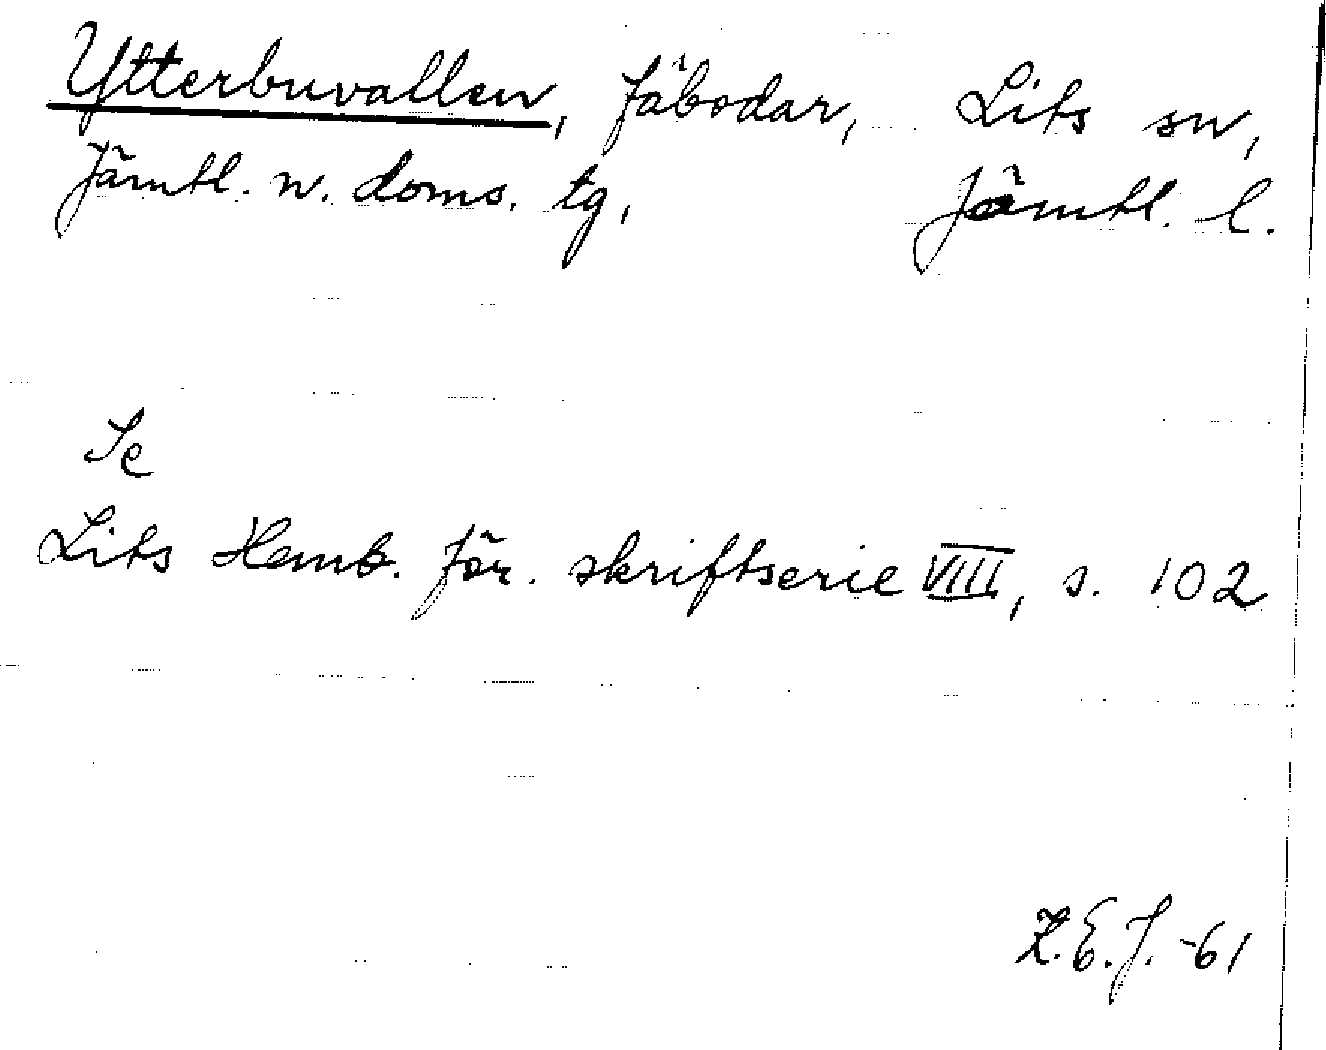 Ytterbuvallen, fäbodar, Lits sn,
Jämtl. n. doms. tg, Jämtl. l.
Se
Lits Hemb. för. skriftserie VIII, s. 102
K.E.J. -61